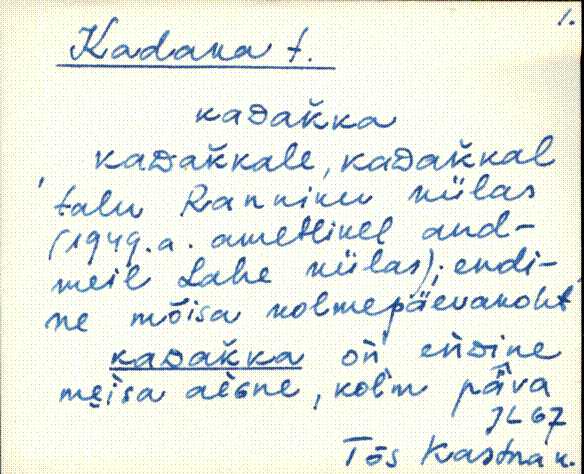 1.
Kadaka t.
kaᴅak̆ka
kaᴅak̆kale, kaᴅak̆kal
talu Ranniku külas
(1949.a. ametlikel and-
meil Lahe külas); endi-
ne mõisa kolmepäevakoht
kaᴅak̆ka on̆ en̆ᴅine
mei̭sa aèɢne, kolm päva
JL 67
Tõs Kastna k.